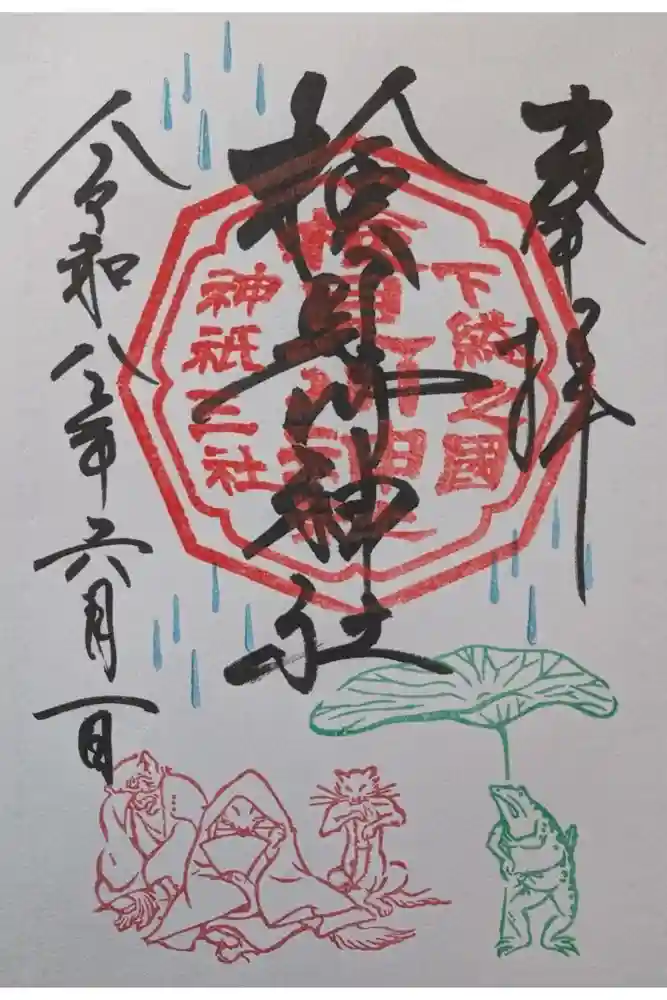 奉拝
下総之國
検見川神社
神祇三社
令和八年六月一日